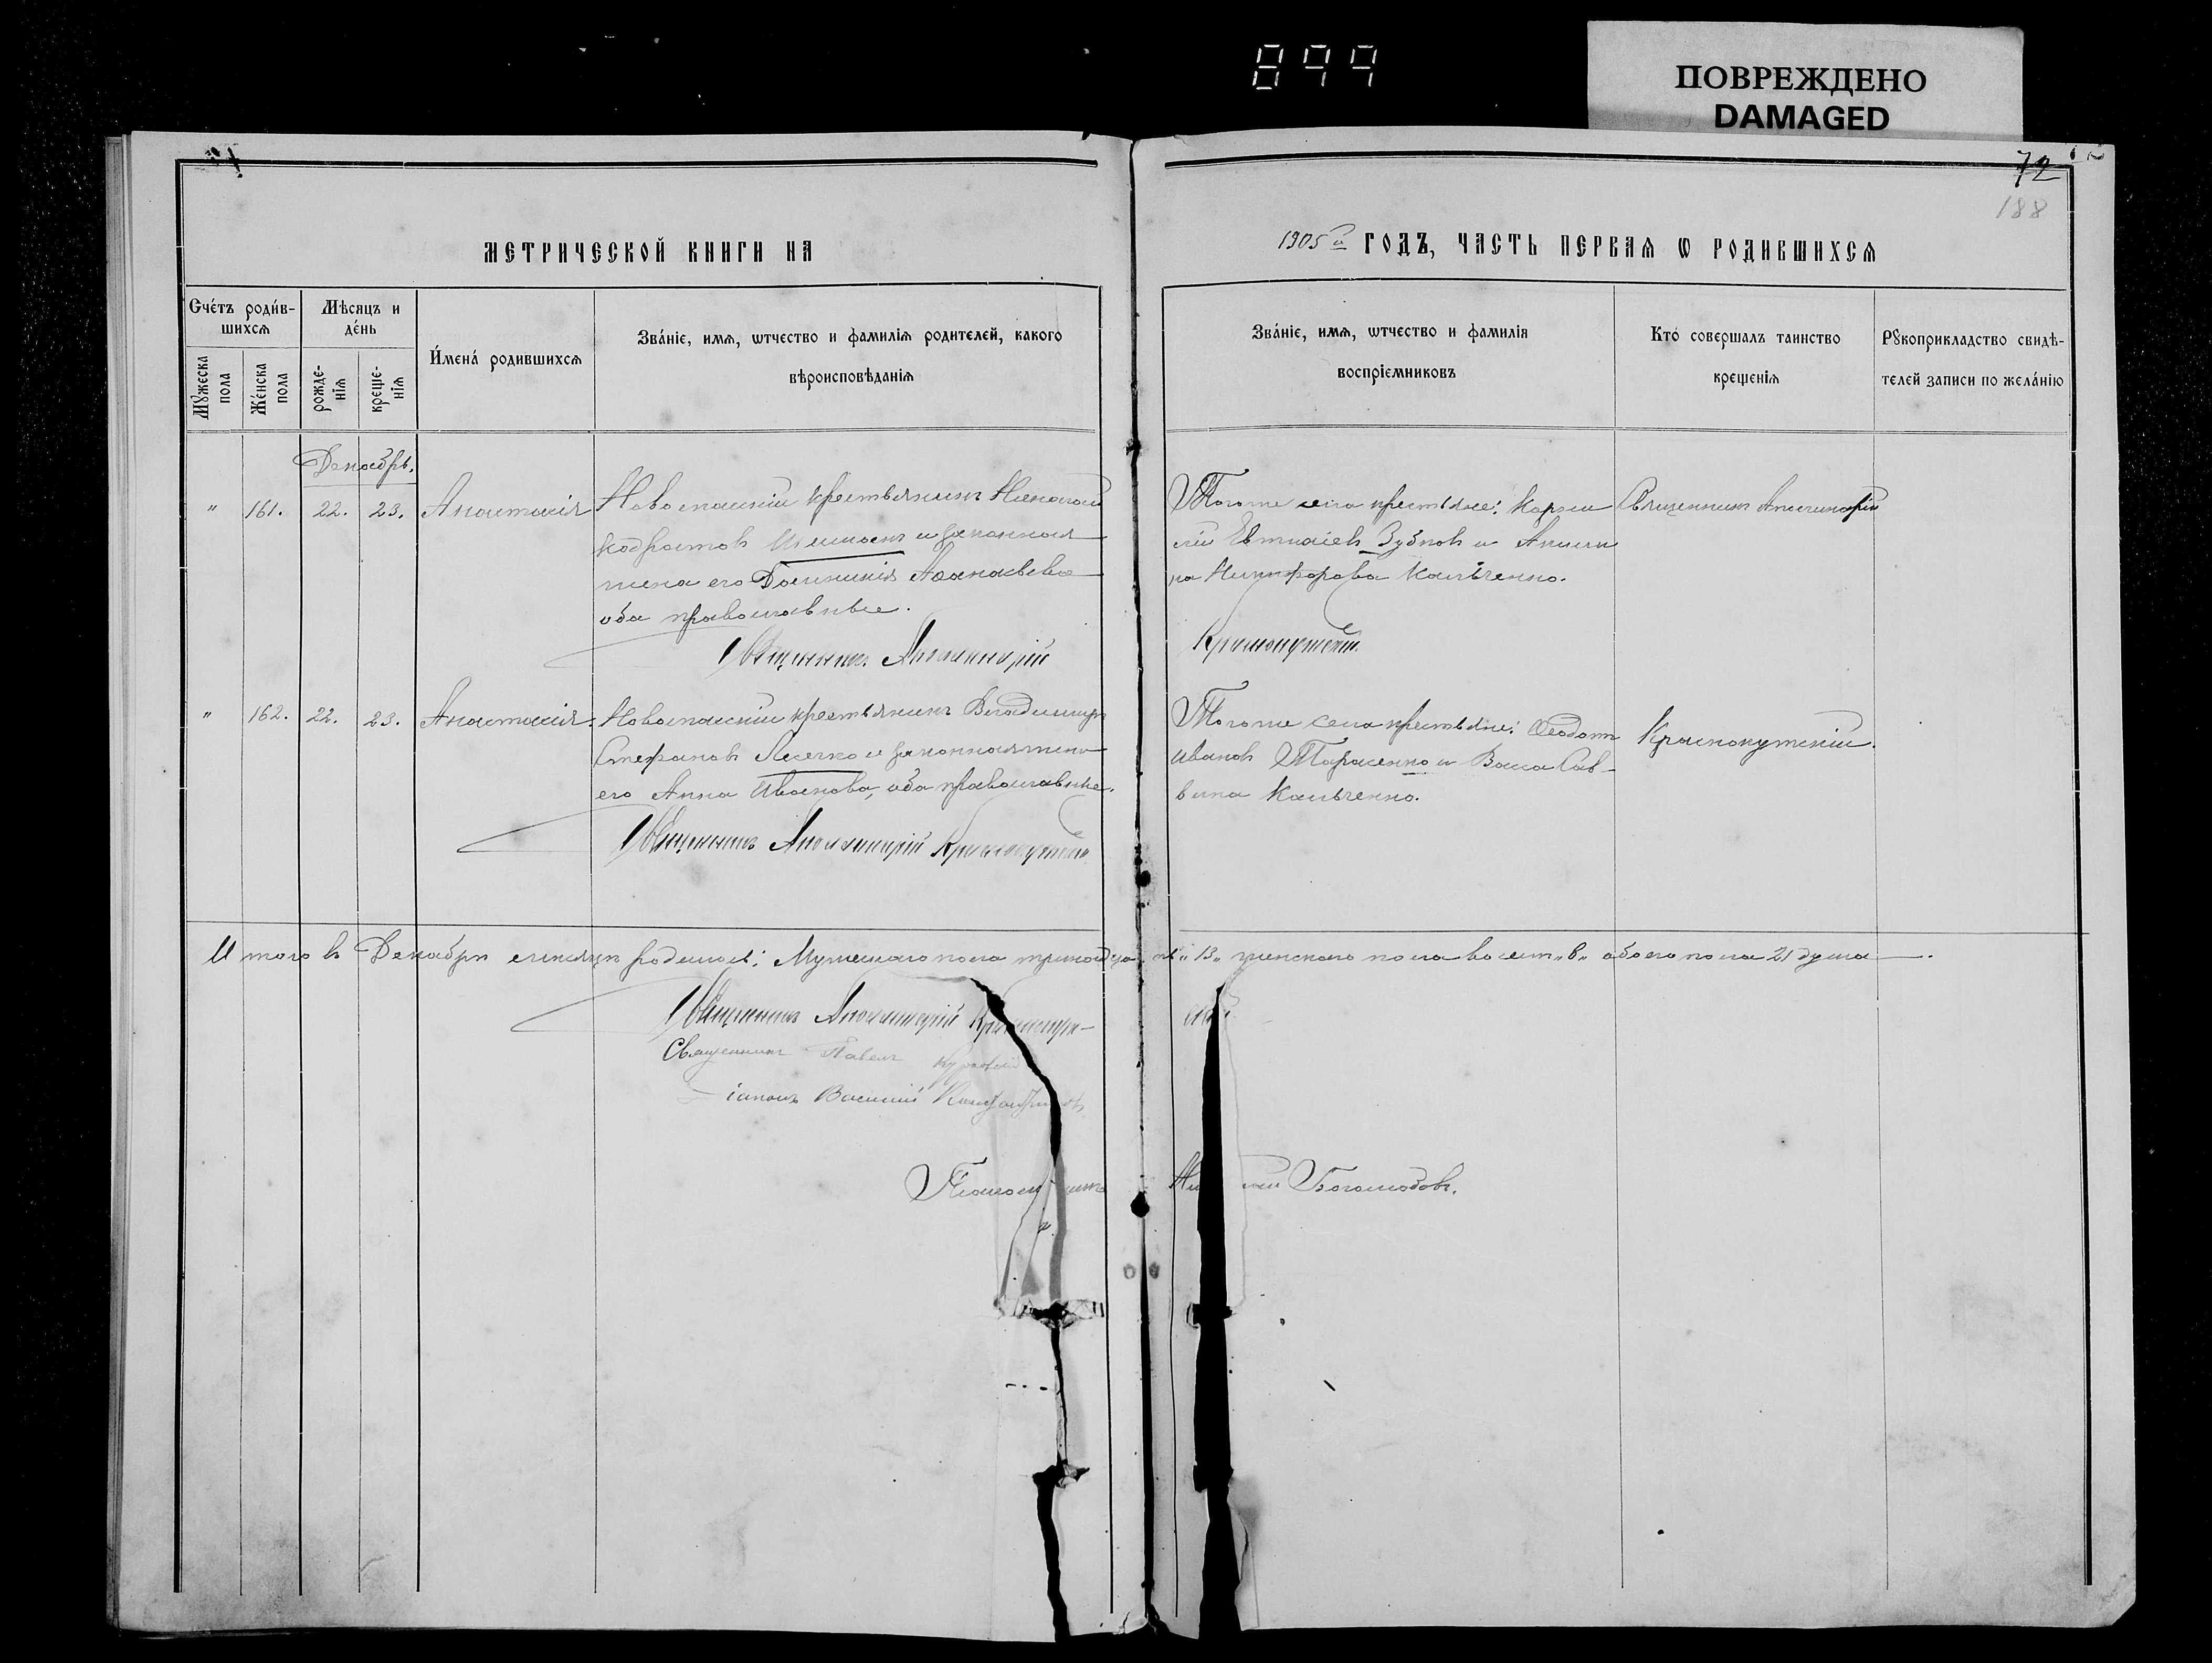 899
ПОВРЕЖДЕНО
DAMAGED
72
188
МЕТРИЧЕСКОЙ КНИГИ НА
1905й ГОДЪ, ЧАСТЬ ПЕРВАЯ Ѡ РОДИВШИХСЯ
Счетъ родившихся
Мѣсяцъ и день
Мужеска пола
Женска пола
рожденія
крещенія
Имена родившихся
Званіе, имя, ѡтчество и фамилія родителей, какого
вѣроисповѣданія
Званіе, имя, ѡтчество и фамилія
воспріемниковъ
Кто совершалъ таинство
крещенія
Рукоприкладство свидѣ-
телей записи по желанію
Декабрь.
" 161. 22. 23. Анастасія
Новоспасскій крестьянинъ
и законная
жена его Домникія Аѳанасьева
оба православные.
Священникъ Аполлинарій
Краснокутскій
Тогоже села крестьяне:
Евтихіевъ Зубковъ и Акили-
на Никифорова Кальченко.
Священникъ Аполлинарій
" 162. 22. 23. Анастасія.
Новоспасскій крестьянинъ Владиміръ
Стефановъ и законная жена
его Анна Иванова, оба православные.
Священникъ Аполлинарій Краснокутскій
Тогоже села крестьяне: Ѳеодотъ
Ивановъ Тарасенко и Васса Сав-
вина Кальченко.
Краснокутскій.
Итого въ Декабрѣ мѣсяцѣ родилось: Мужескаго пола тринадцать "13" женскаго пола восемь "8" обоего пола 21 душа
Священникъ Аполлинарій Краснокут-
скій
Священникъ Павелъ
Василій
Псаломщикъ
Богомодовъ.